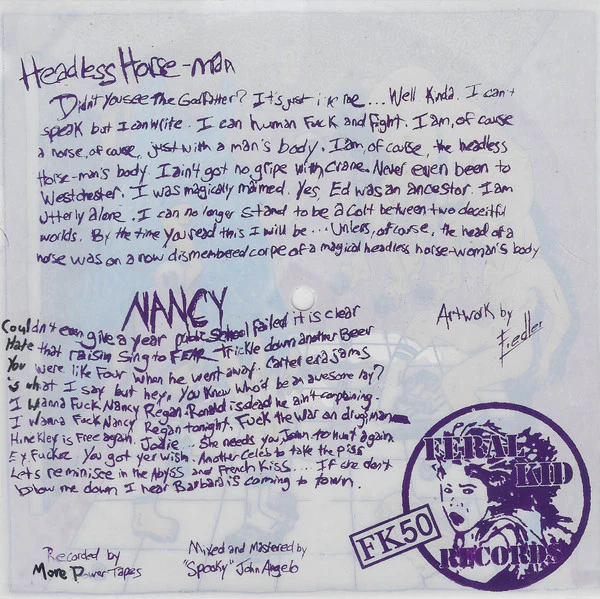 Headless Horse-man
Didn't you see The Godfather? It's just like me... Well Kinda. I can't
speak but I can write. I can human Fuck and fight. I am, of course
a horse, of course, just with a man's body. I am, of course, the headless
Horse-man's body. I ain't got no gripe with Crane. Never even been to
Westchester. I was magically maimed. Yes, Ed was an ancestor. I am
utterly alone. I can no longer stand to be a colt between two deceitful
worlds. By the time you read this I will be... Unless, of course, the head of a
horse was on a now dismembered corpe of a magical headless horse-woman's body
NANCY
Couldn't even give a year public school failed it is clear
Hate that raisin sing to FEAR trickle down another Beer
You were like Four when he went away. Carter era jams
is what I say but hey, you know who'd be an awesome lay?
I wanna Fuck Nancy Regan. Ronald is dead he ain't complaining.
I Wanna Fuck Nancy Regan tonight, Fuck the war on drugs, man
Hinckley is Free again. Jodie... She needs you John to Hunt again.
Ex Fucker. You got yer wish. Another Celeb to take the piss
Lets reminisce in the Abyss and French Kiss.... If she don't
blow me down I hear Barbara is coming to town.
Artwork by
Fiedler
Recorded by
More Power Tapes
Mixed and Mastered by
"Spooky" John Angelo
FERAL KID
RECORDS
FK50